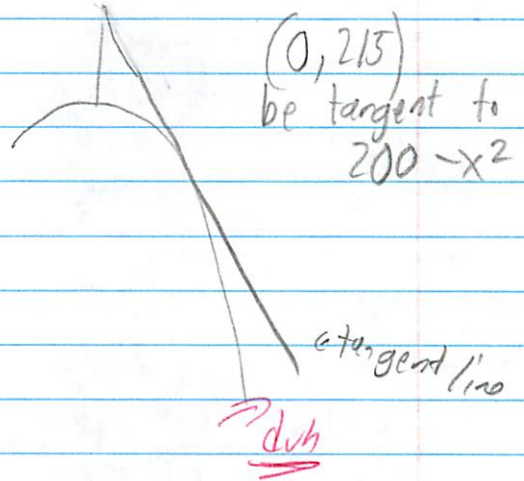 (0, 215)
be tangent to
200 - x²
tangent line
duh